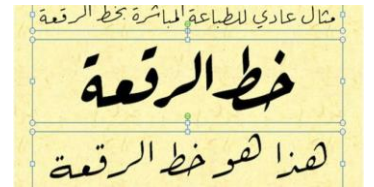 مثال عادي للطباعة المباشرة بخط الرقعة
خط الرقعة
هذا هو خط الرقعة